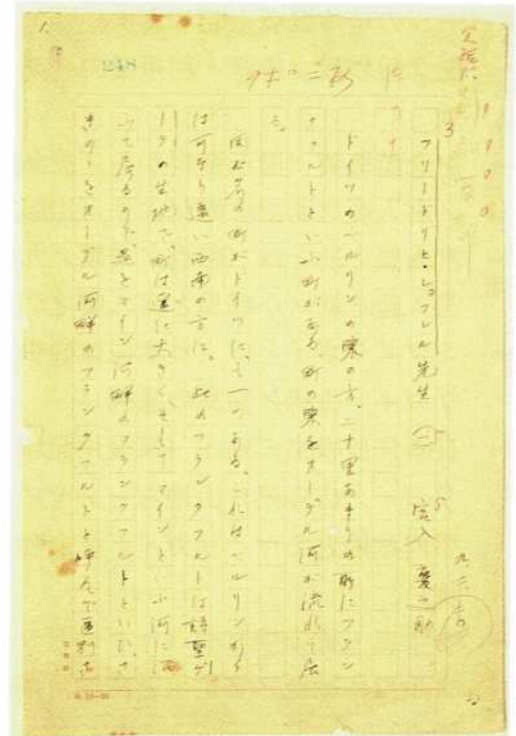 248
3
フリードリヒ・レフレル先生 (一) 宮入慶之助
ドイツのベルリンの東の方、二十里あまりの所にフラン
クフルトといふ町がある、町の東をオーデル河が流れて居
る。
同じ名の町がドイツに、も一つある。これはベルリンから
は可なり遠い西南の方に。此のフランクフルトは詩聖ゲ
ーテの生地で、町は更に大きく、そしてマインと
ふて居るので、是をマイン河畔のフランクフルトといひ、さ
きのをオーデル河畔のフランクフルトと呼んで区別す